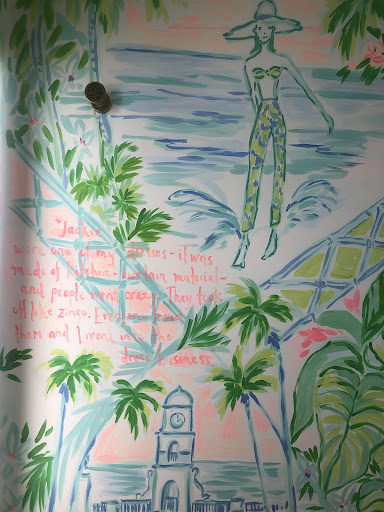 "Jackie
wore one of my dresses - it was
made of kitchen curtain material -
and people went crazy. They took
off like zingo. Everyone
them and I went into the
dress business.